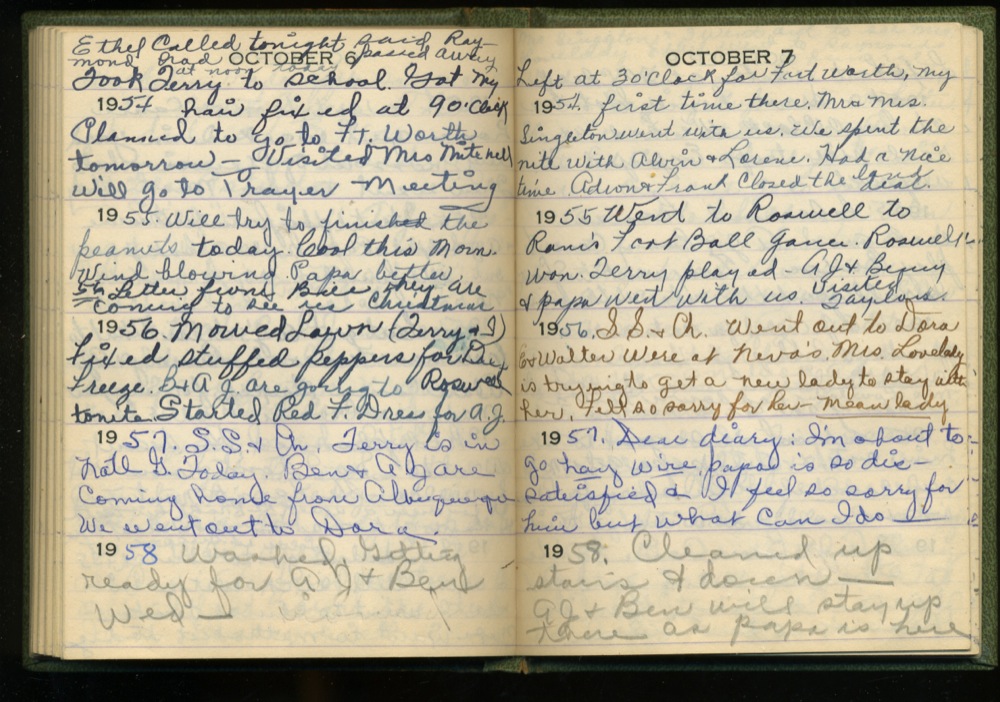 Ethel Called tonight said Ray-
mond Grad passed away
at noon today
OCTOBER 6
Took Terry to school. Got my
1954 hair fixed at 9 O'Clock
Planned to go to Ft. Worth
tomorrow — Visited Mrs Mitchell
Will go to Prayer Meeting
1955. Will try to finished the
peanuts today. Cool this Morn.
Wind blowing. Papa better
Letter from Bill, they are
coming to see us Christmas
1956. Mowed Lawn (Terry & I)
Fixed stuffed peppers for Deep
Freeze. B & A J. are going to Roswell
tonite. Started Red F. Dress for A. J.
1957. S.S. & Ch. Terry is in
Natl G. Today. Ben & A J are
Coming home from Albuquerque
We went out to Dora.
1958 Washed, Getting
ready for A J & Ben
Wed —
OCTOBER 7
Left at 3 O'Clock for Fort Worth, my
1954. first time there. Mrs
Singleton went with us. We spent the
nite with Alvin & Lorene. Had a nice
time. & Frank Closed the land
deal.
1955 Went to Roswell to
Foot Ball game. Roswell
won. Terry played - A J & Benny
& papa went with us. Visited
Taylors.
1956. S. S. & Ch. Went out to Dora
& Walter were at Neva's. Mrs. Lovelady
is trying to get a new lady to stay with
her, Fell so sorry for her — mean lady
1957. Dear diary: I'm about to
go hay wire, papa is so dis-
satisfied & I feel so sorry for
him but what Can I do —
1958. Cleaned up
stairs & down —
A J & Ben will stay up
there as papa is here